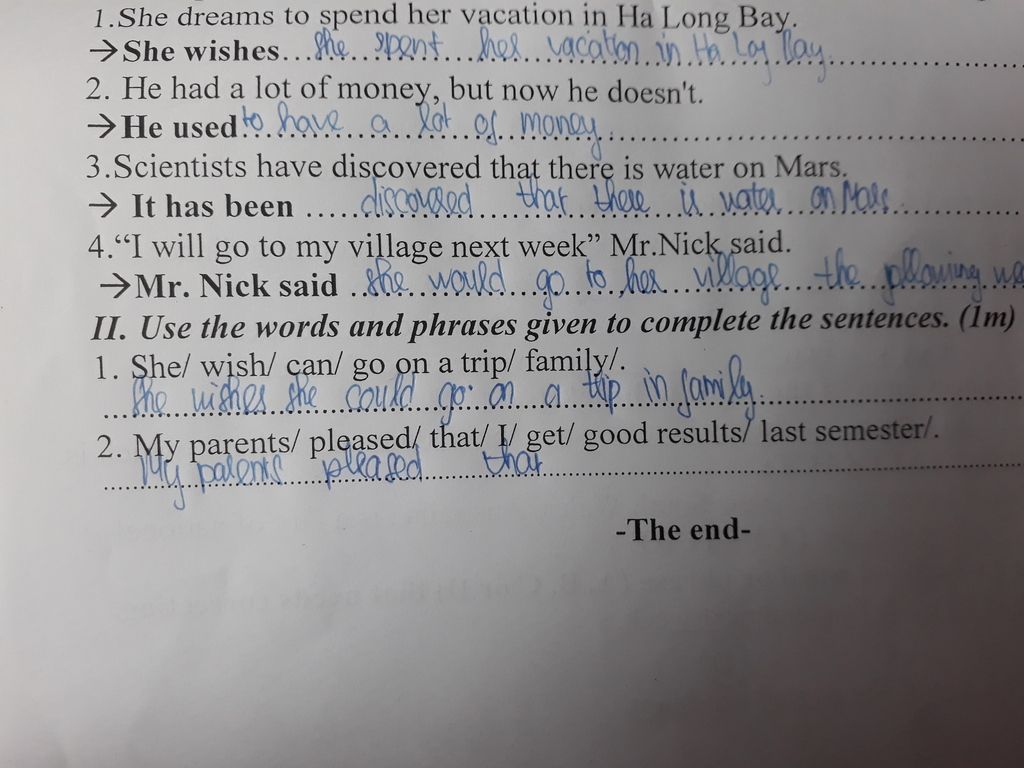 1.She dreams to spend her vacation in Ha Long Bay.
→She wishes...she spent her vacation in Ha Log Bay
2. He had a lot of money, but now he doesn't.
→He used to have a lot of money
3.Scientists have discovered that there is water on Mars.
→ It has been .....discovered that there is water on Mars
4.“I will go to my village next week” Mr.Nick said.
→Mr. Nick said ..she would go to her village the
II. Use the words and phrases given to complete the sentences. (1m)
1. She/ wish/ can/ go on a trip/ family/.
She wishes she could go on a trip in family.
2. My parents/ pleased/ that/ I/ get/ good results/ last semester/.
My parents pleased that
-The end-